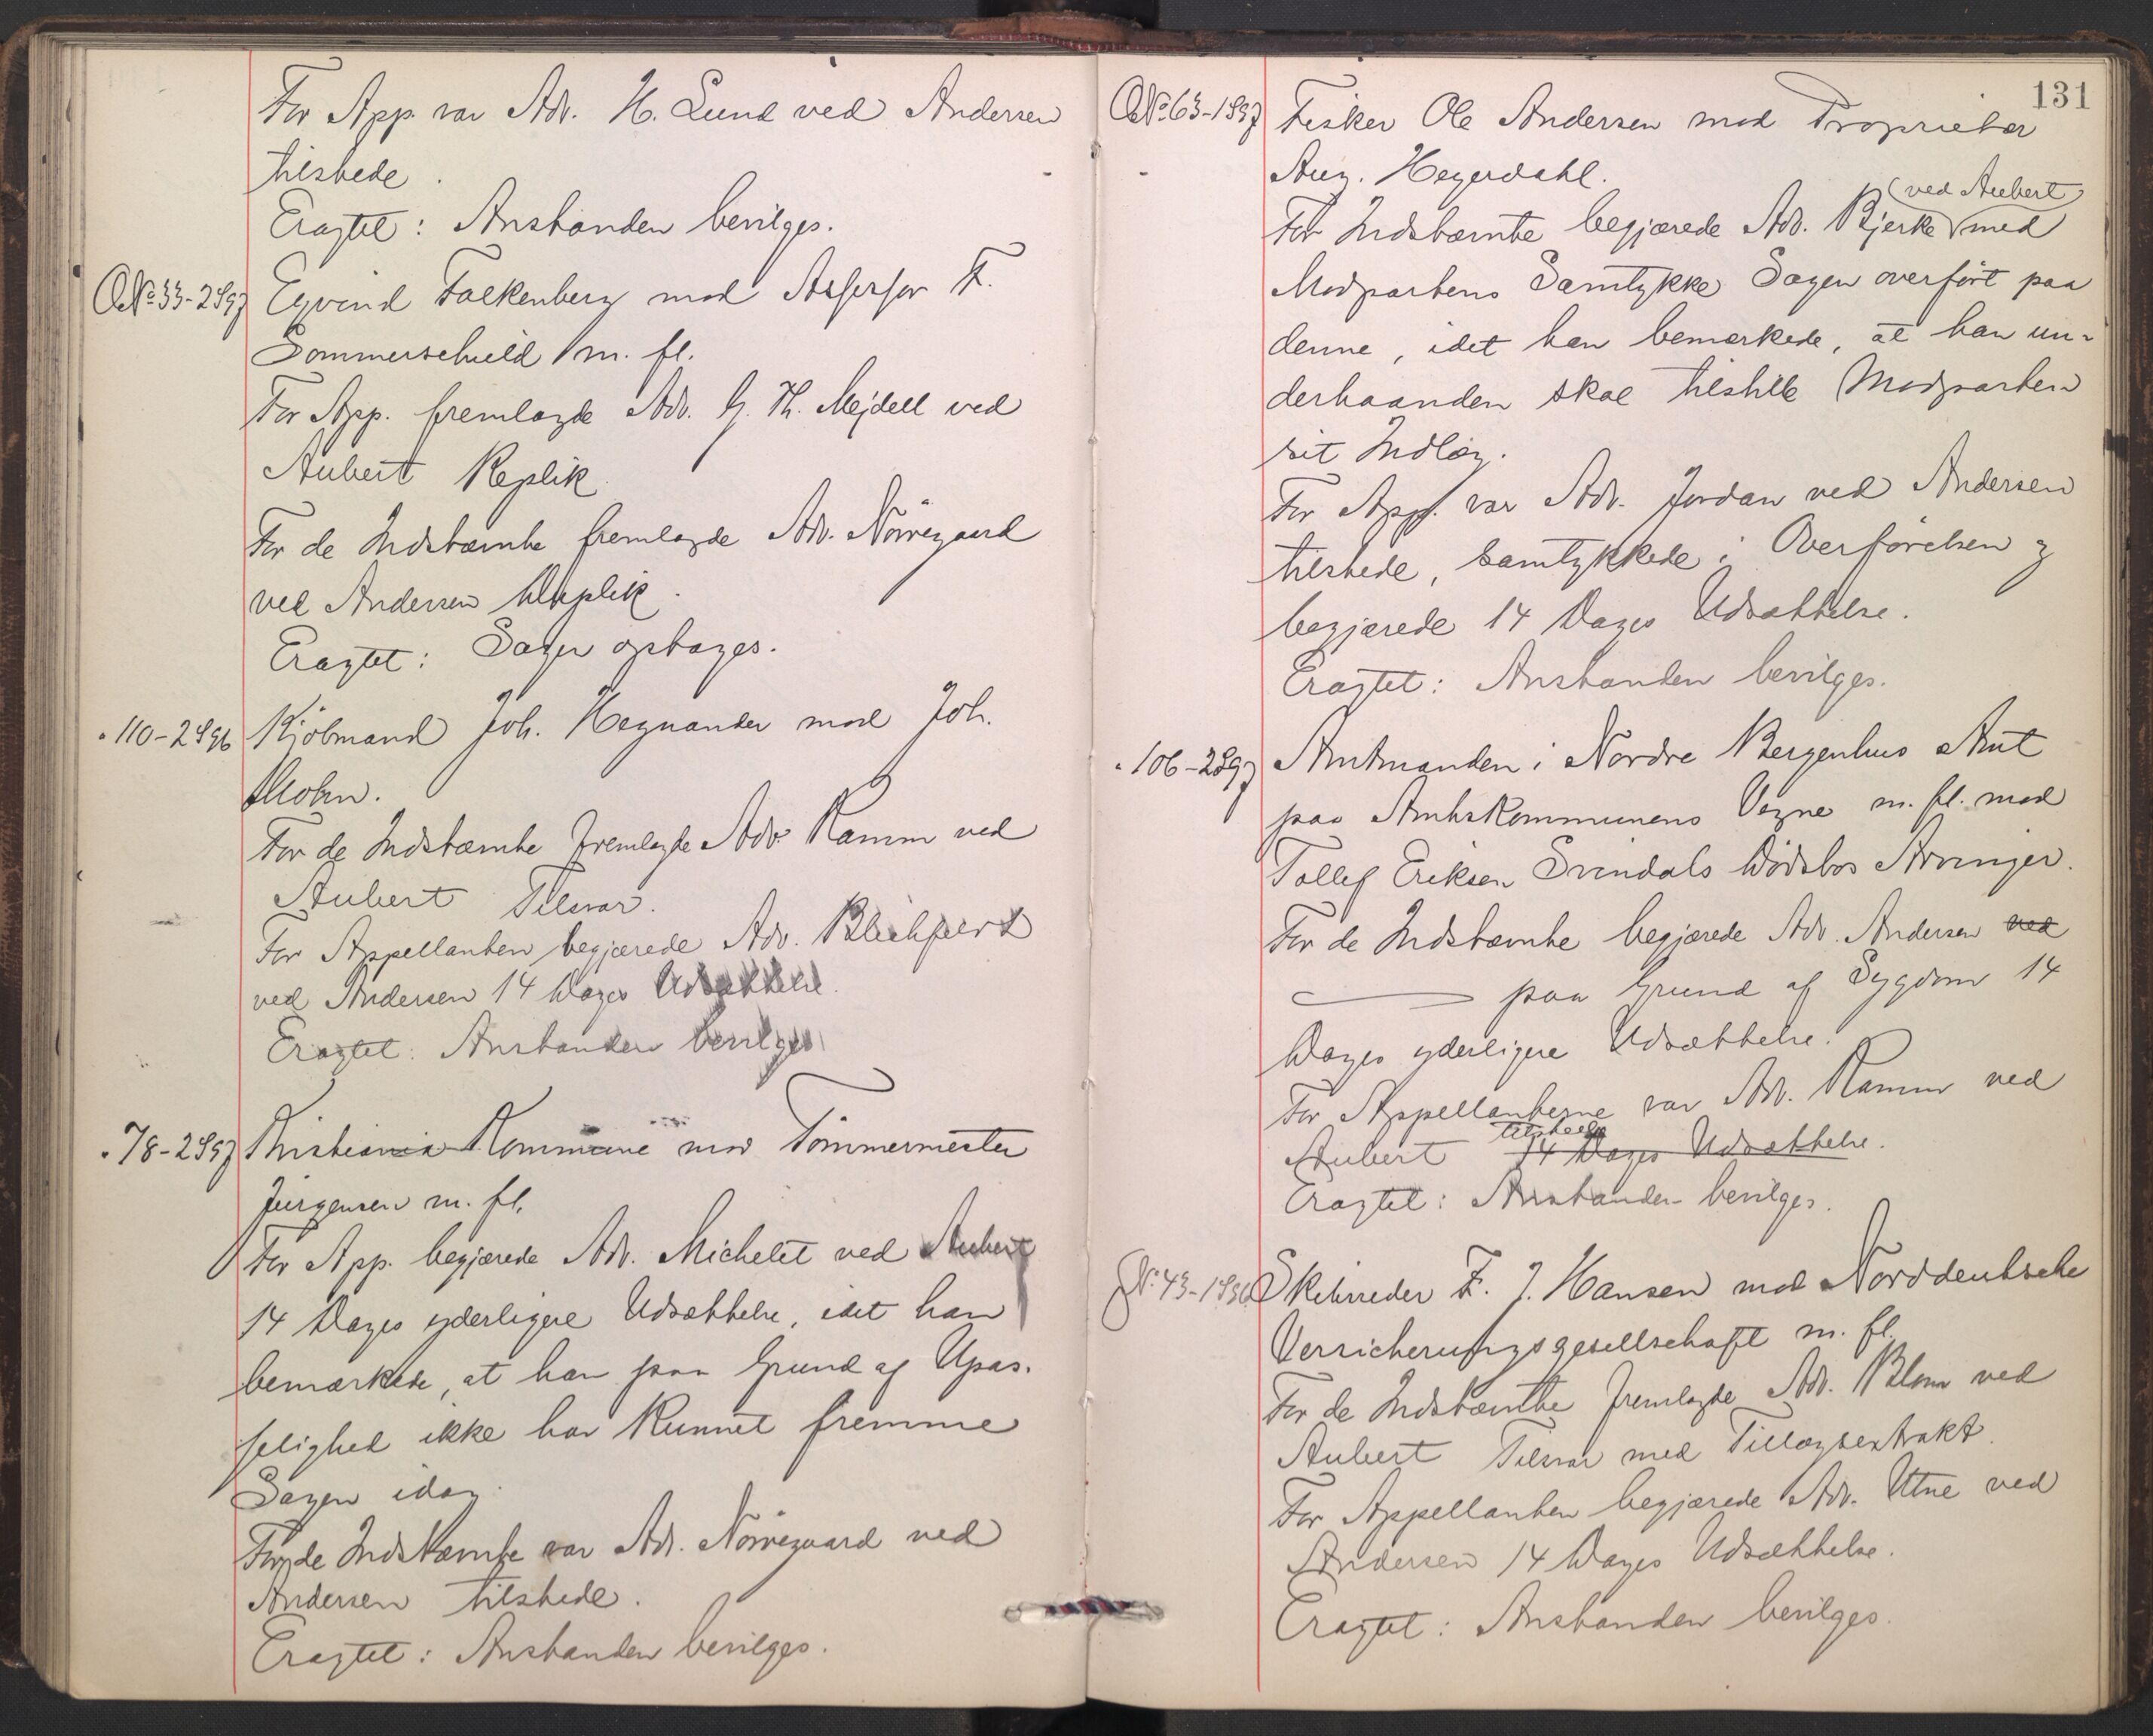 For App. var Adv. H. Lund ved Andersen
tilstede.
Eragtet: Anstanden bevilges.
No 33-2 97 Eyvind Falkenberg mod Assessor F.
Sommerschield m. fl.
For App. fremlagde Adv. G. Th. Mejdell ved
Aubert Replik.
For de Indstævnte fremlagde Adv. Nørregaard
ved Andersen Duplik.
Eragtet: Sagen optages.
" 110-2 96 Kjöbmand Joh. Hegnander mod Joh.
Mohn.
For de Indstævnte fremlagde Adv. Kamm ved
Aubert Tilsvar.
For Appellanten begjærede Adv.
ved Andersen 14 Dages Udsættelse.
Eragtet: Anstanden bevilges.
" 78-2 97 Kristiania Kommune mod Tömmermester
Jürgensen m. fl.
For App. begjærede Adv. Michelet ved Aubert
14 Dages yderligere Udsættelse, idet han
bemærkede, at han paa Grund af Upas-
selighed ikke har kunnet fremme
Sagen idag.
For de Indstævnte var Adv. Nörregaard ved
Andersen tilstede.
Eragtet: Anstanden bevilges.
131
No 63-1 97 Fisker Ole Andersen mod Proprietær
Aug. Heyerdahl.
For Indstævnte begjærede Adv. Bjerke (ved Aubert) med
Modpartens Samtykke Sagen overfört paa
denne, idet han bemærkede, at han un-
derhaanden skal tilstille Modparten
sit Indlæg.
For App. var Adv. Jordan ved Andersen
tilstede, samtykkede i Overförelsen og
begjærede 14 Dages Udsættelse.
Eragtet: Anstanden bevilges.
" 106-2 97 Amtmanden i Nordre Bergenhus Amt
paa Amtskommunens Vegne m. fl. mod
Tollef Eriksen Svendals Dödsbos Arvinger.
For de Indstævnte begjærede Adv. Andersen ved
paa Grund af Sygdom 14
Dages yderligere Udsættelse.
For Appellanterne var Adv. Kamm ved
Aubert tilstede 14 Dages Udsættelse.
Eragtet: Anstanden bevilges.
No 43-1 96 Skibsreder F. J. Hansen mod Norddeutsche
Versicherungsgesellschaft m. fl.
For de Indstævnte fremlagde Adv. Blom ved
Aubert Tilsvar med Tillægsextrakt.
For Appellanten begjærede Adv. Utne ved
Andersen 14 Dages Udsættelse.
Eragtet: Anstanden bevilges.